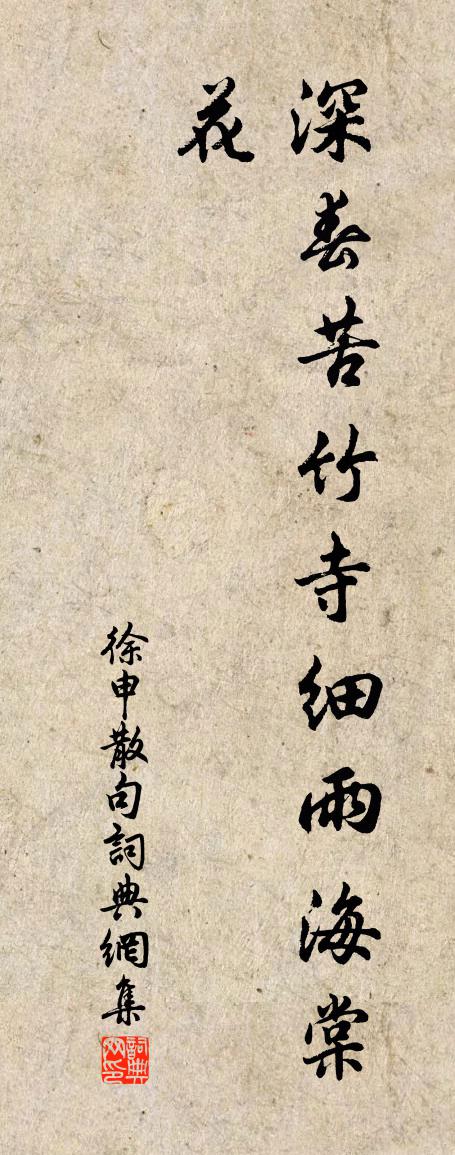 深春苦竹寺細雨海棠
花
徐申散句詞典網集
詞典網印